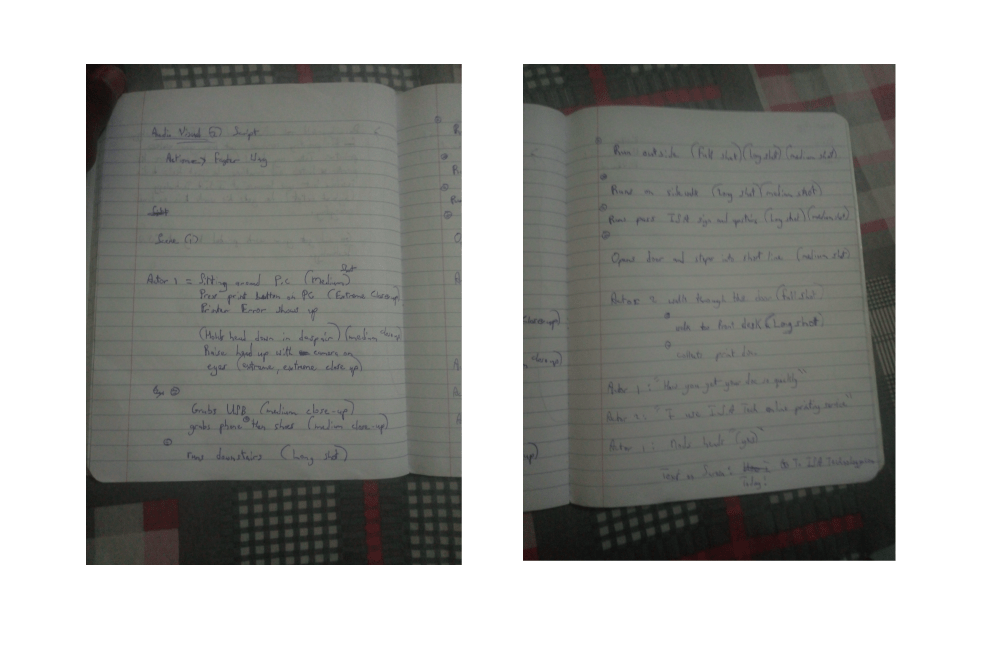 Audio Visual (5) Script
Actions →
Scene (1)
Actor 1 = Sitting around P.C (medium shot)
Press print button on PC (Extreme Close up)
Printer Error show up
(Holds head down in despair) (medium close up)
Raise head up with camera on
eyes (extreme, extreme close up)
②
Grabs USB (medium close-up)
grabs phone then shoes (medium close-up)
runs downstairs (Long shot)
Runs outside (full shot) (long shot) (medium shot)
Runs on sidewalk (Long shot) (medium shot)
Runs pass sign and (Long shot) (medium shot)
Opens door and steps into short line (medium shot)
Actor 2 walk through the door (full shot)
walk to front desk (Long shot)
collects print doc
Actor 1: "How you get your doc so quickly"
Actor 2: "I use Tech online printing service"
Actor 1: Nods head
Text on Screen: to Technology
Today!